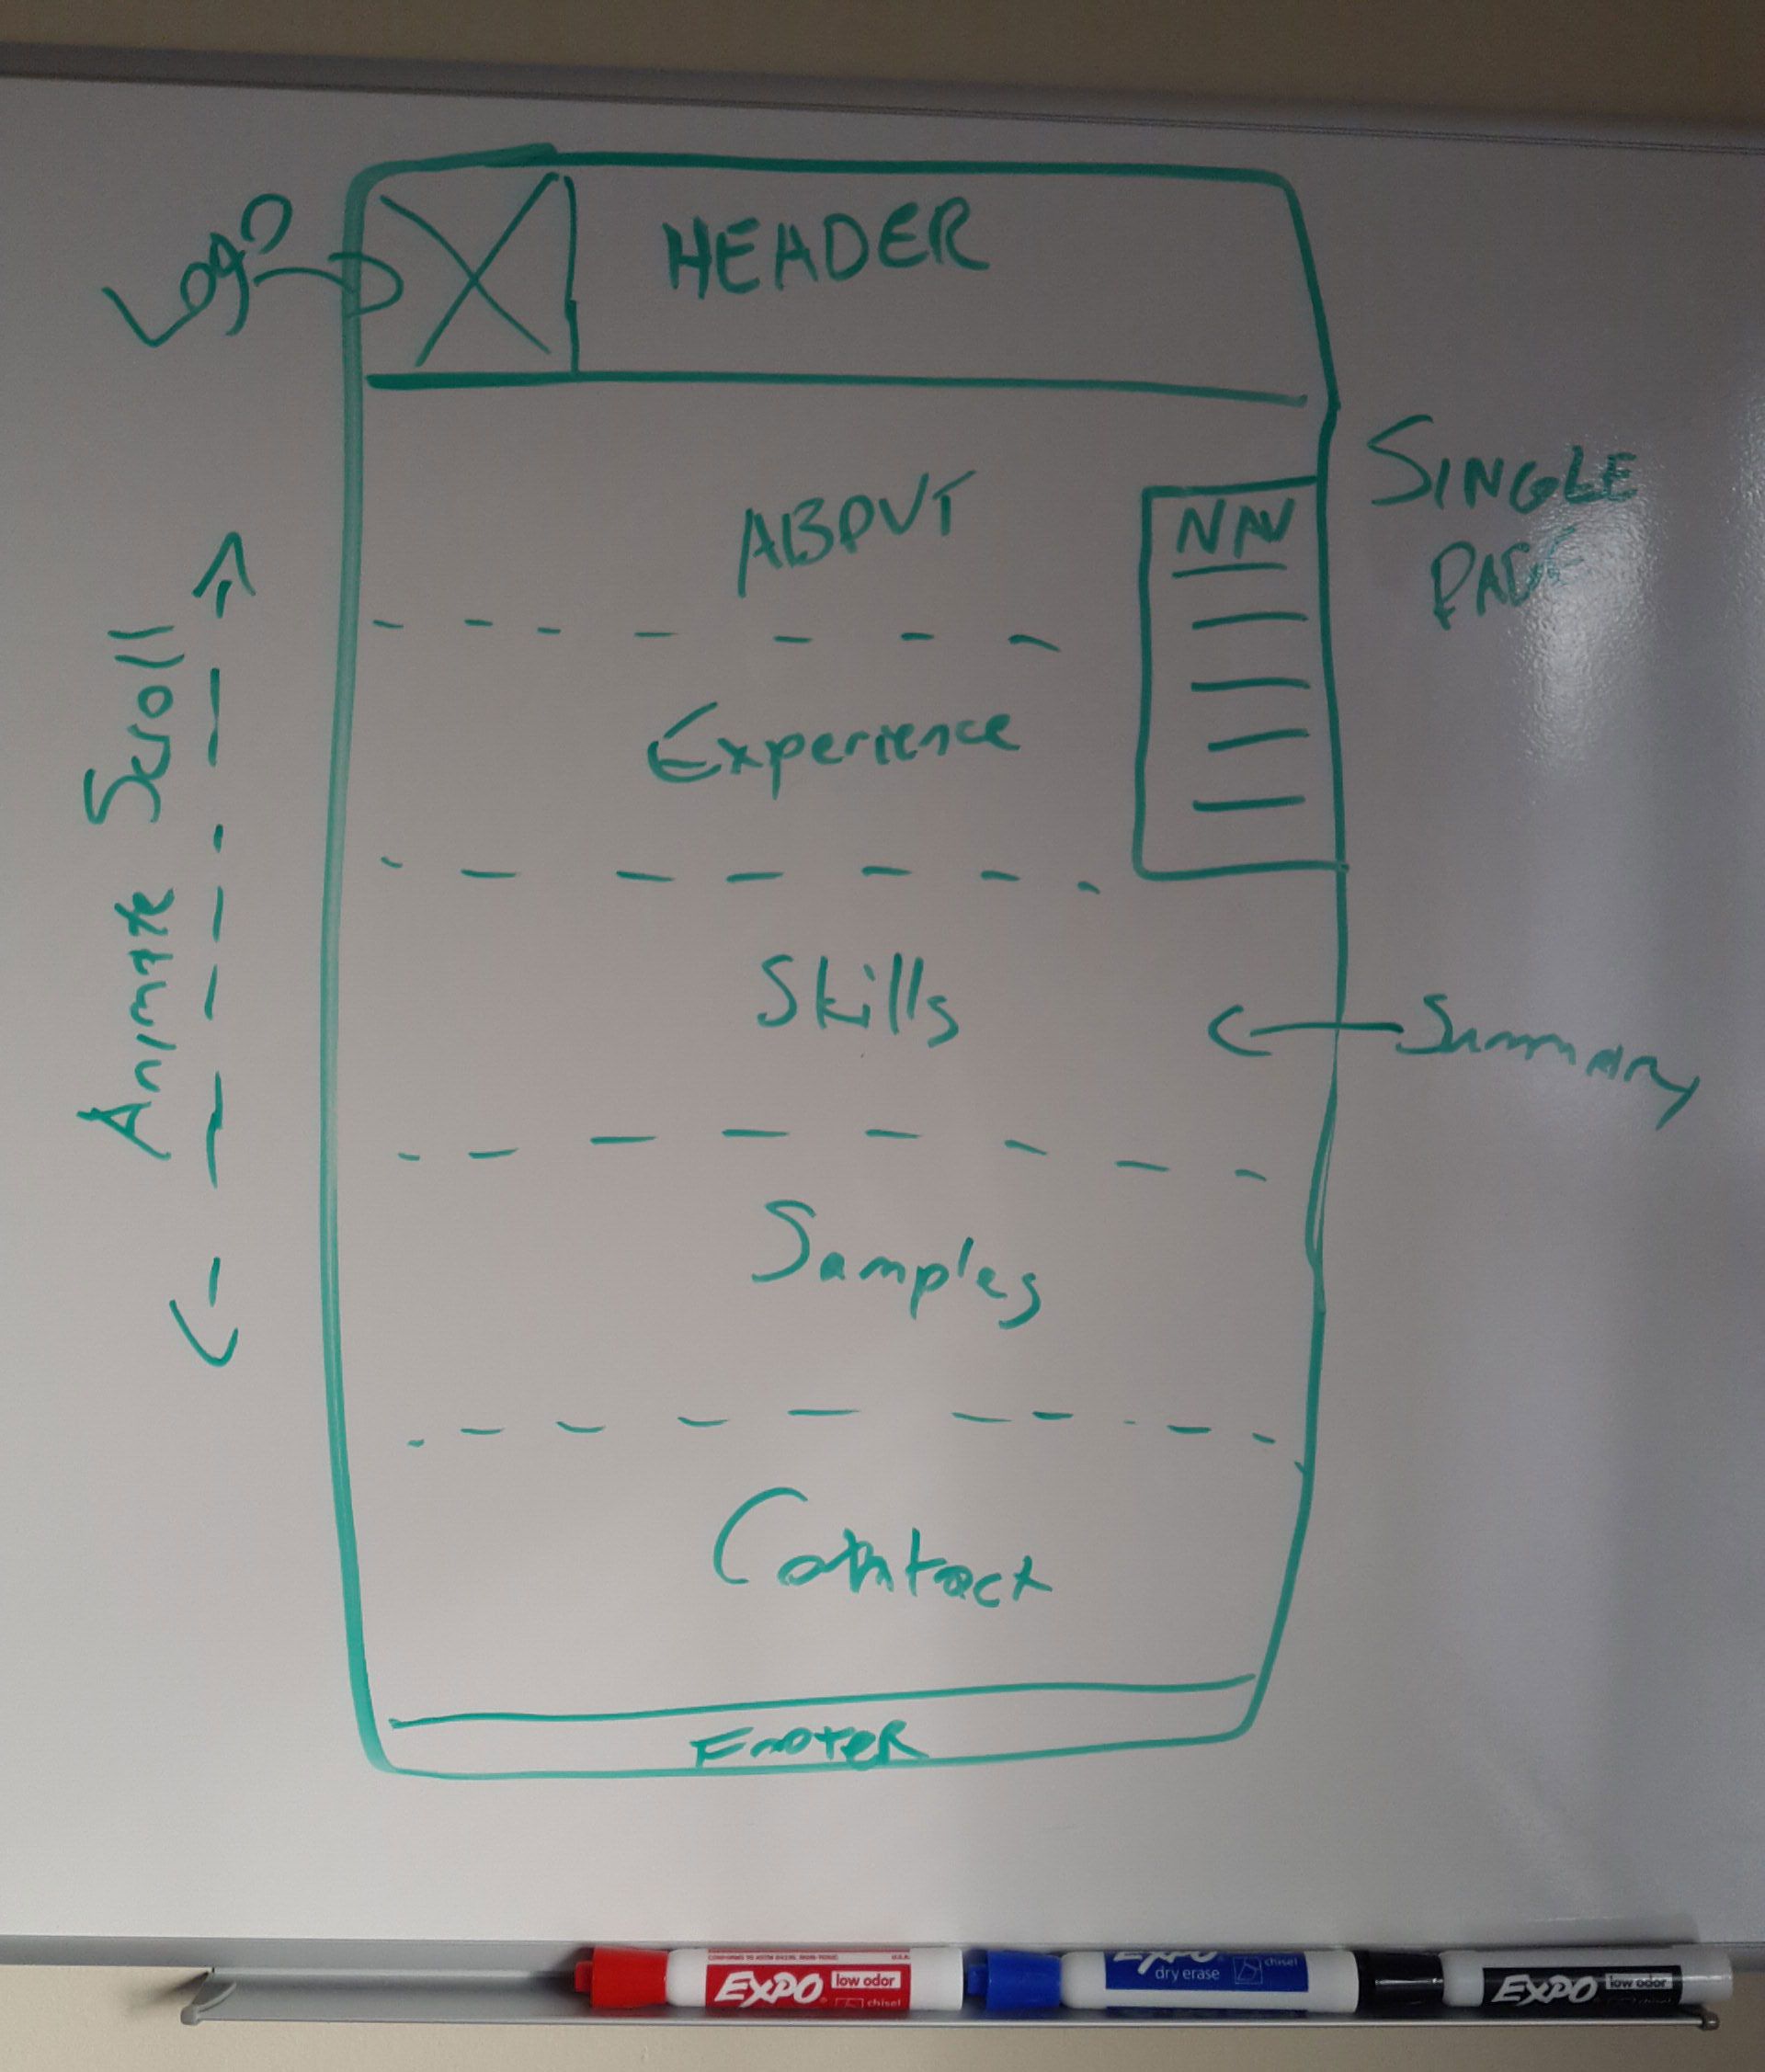 Logo
HEADER
SINGLE
PAGE
ABOUT
NAV
Animate Scroll
Experience
Skills
Summary
Samples
Contact
FOOTER
EXPO
low odor
chisel
EXPO
dry erase
chisel
EXPO
low odor